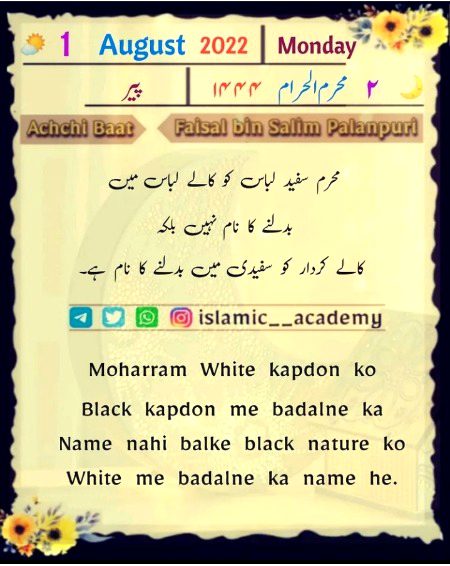 1 August 2022 Monday
۲ محرم الحرام ۱۴۴۴ پیر
Achchi Baat Faisal bin Salim Palanpuri
محرم سفید لباس کو کالے لباس میں
بدلنے کا نام نہیں بلکہ
کالے کردار کو سفیدی میں بدلنے کا نام ہے۔
islamic__academy
Moharram White kapdon ko
Black kapdon me badalne ka
Name nahi balke black nature ko
White me badalne ka name he.